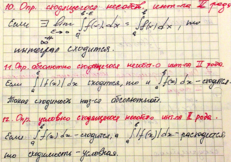 10. Опр. сходящегося несобств. инт-ла II рода
Если ∃ lim ∫ f(x) dx = ∫ f(x) dx, то
интеграл сходится.
11. Опр. абсолютно сходящегося несобст-го инт-ла II рода.
Если ∫ |f(x)| dx сходится, то и ∫ f(x) dx - сходится.
Такая сходимость наз-ся абсолютной.
12. Опр. условно сходящегося несобст-го инт-ла II рода.
Если ∫ f(x) dx - сходится, а ∫ |f(x)| dx - расходится
то сходимость - условная.